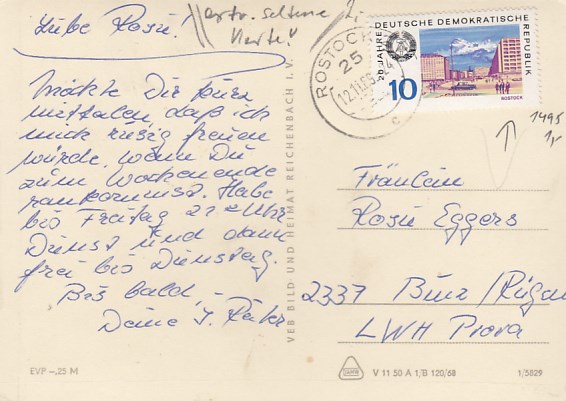 Liebe Rosi!
extr. seltene
Karte!
Möchte Dir kurz
mitteilen, daß ich
mich riesig freuen
würde, wenn Du
zum Wochenende
rankommst. Habe
bis Freitag 21 Uhr
Dienst und dann
frei bis Dienstag.
Bis bald, –
Deine I.
EVP –,25 M
VEB BILD UND HEIMAT REICHENBACH I. V.
ROSTOCK
25
c
DEUTSCHE DEMOKRATISCHE
REPUBLIK
25 JAHRE
10
ROSTOCK
1495
Fräulein
Rosi Eggers
2337 Binz/Rügen
LWH Prora
V 11 50 A 1/B 120/68
1/5829